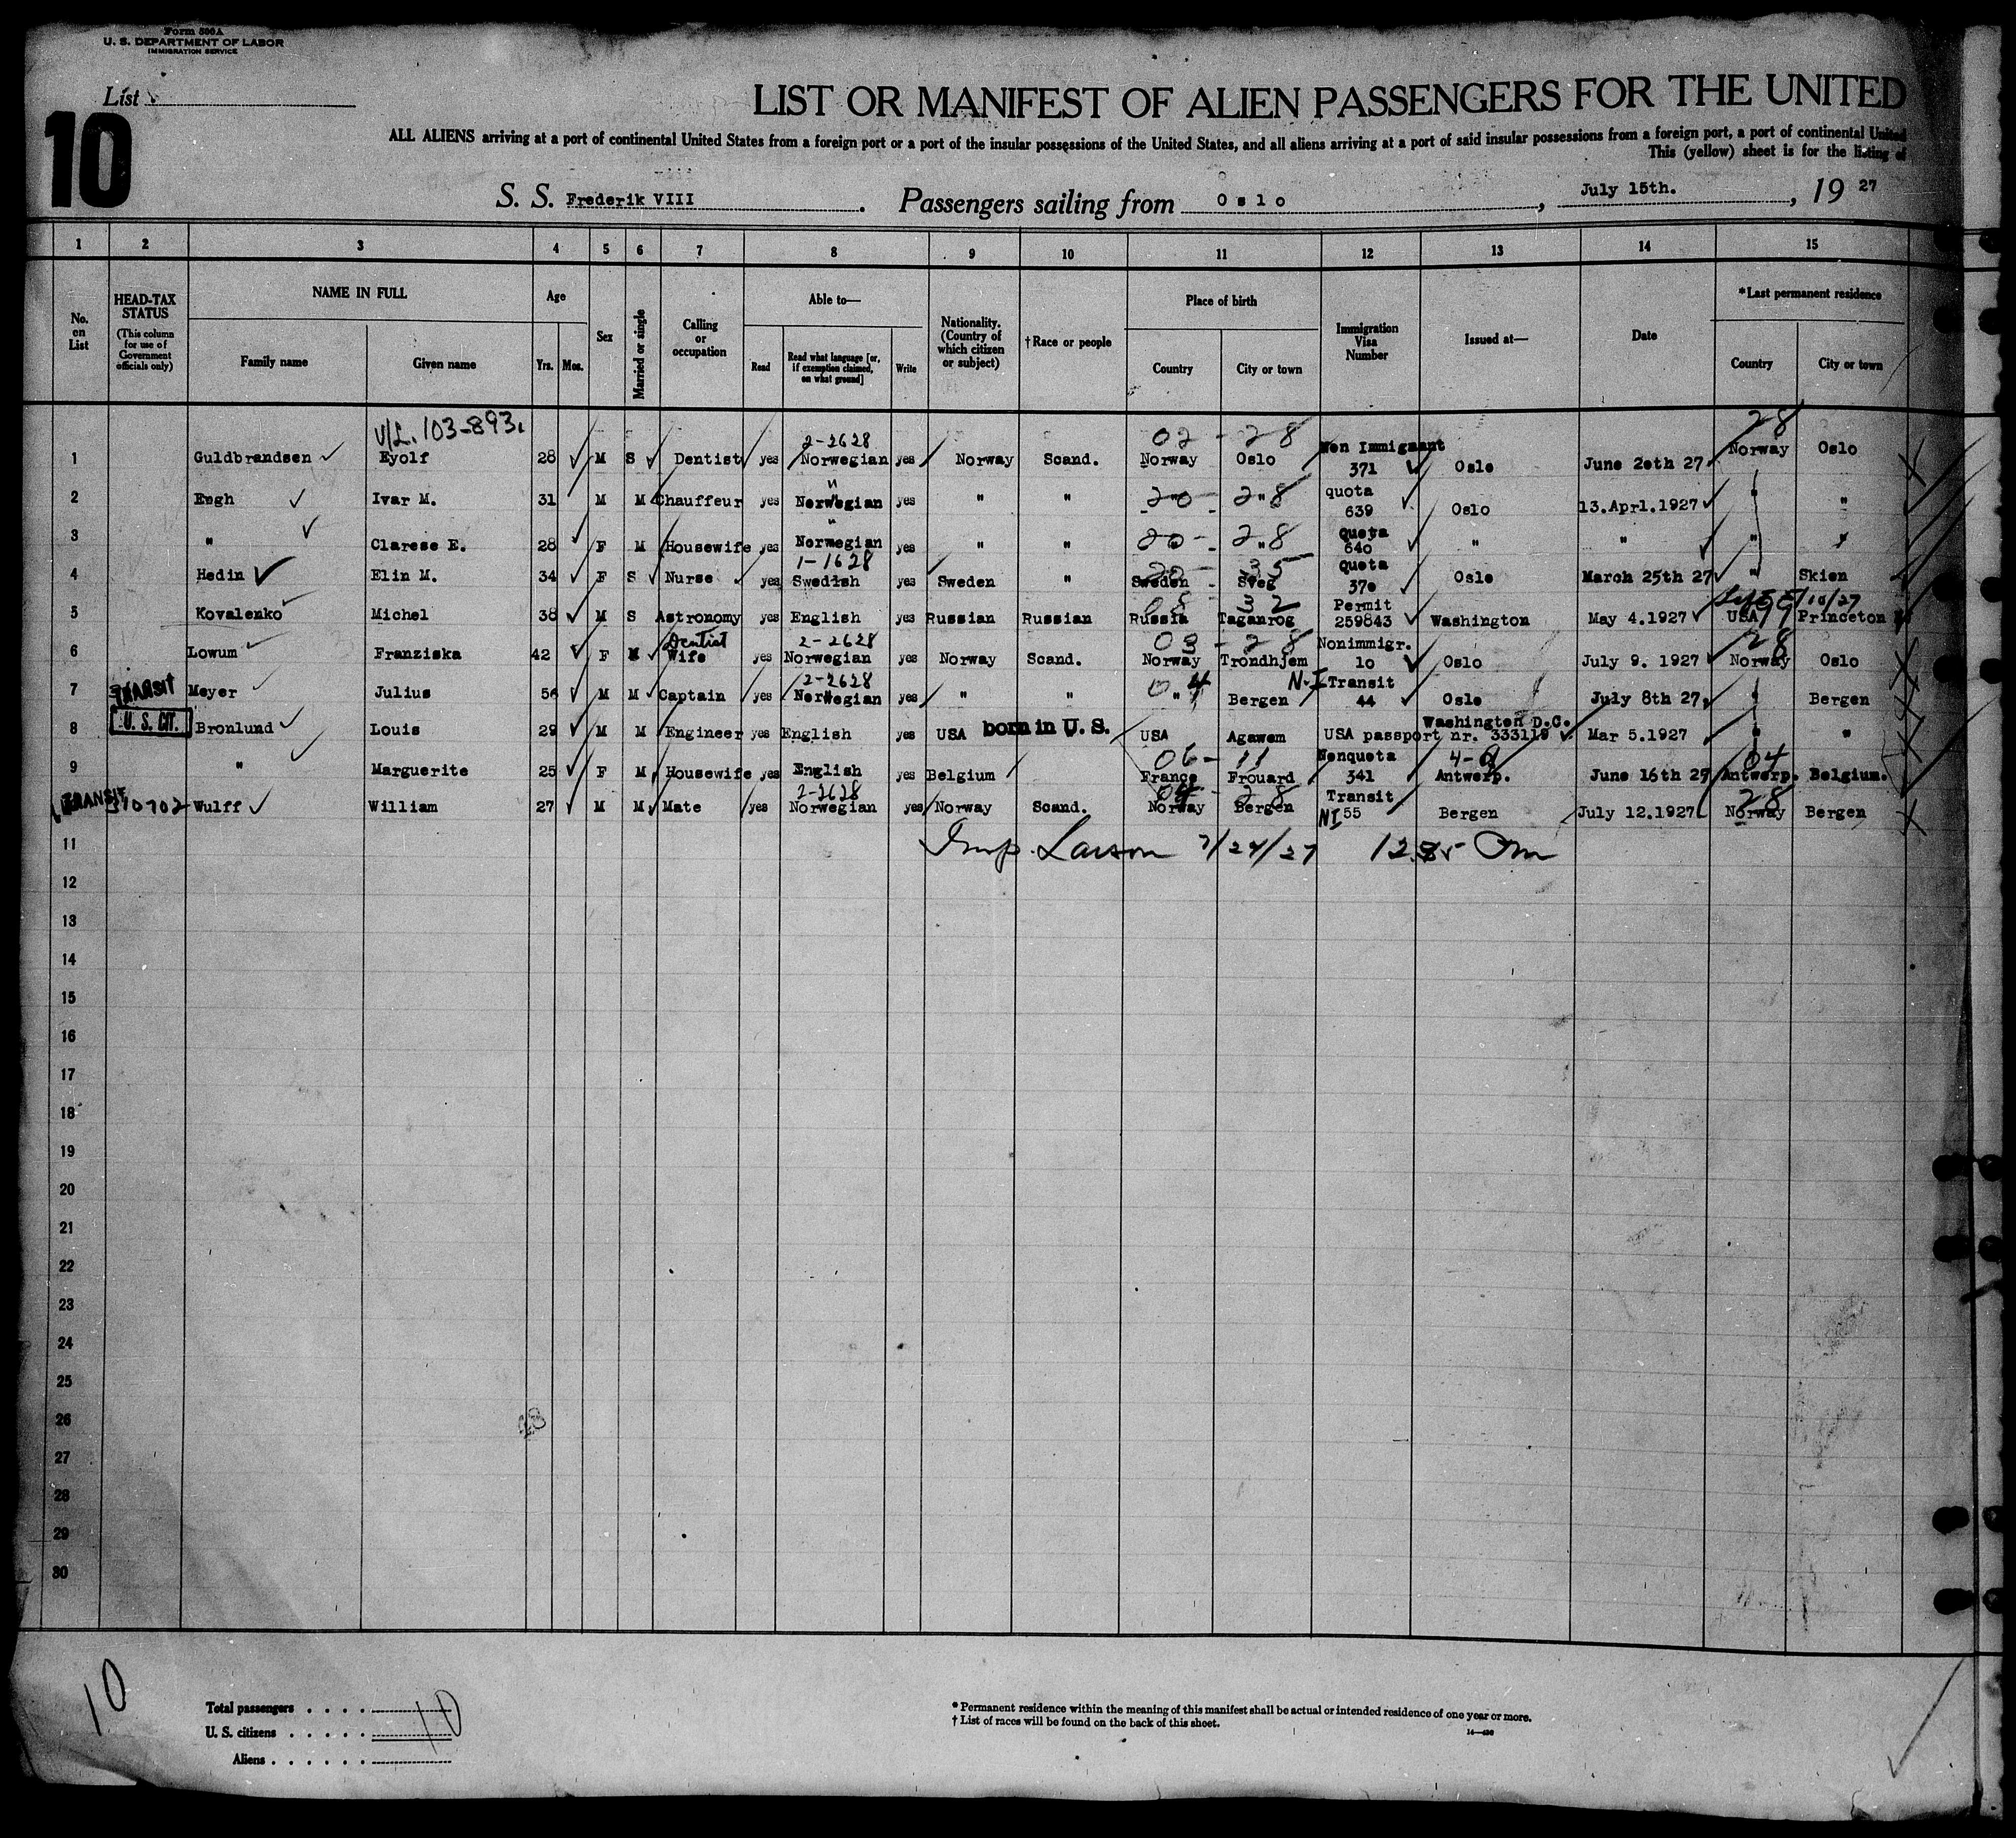 Form 500A
U. S. DEPARTMENT OF LABOR
IMMIGRATION SERVICE
List
10
LIST OR MANIFEST OF ALIEN PASSENGERS FOR THE UNITED
ALL ALIENS arriving at a port of continental United States from a foreign port or a port of the insular possessions of the United States, and all aliens arriving at a port of said insular possessions from a foreign port, a port of continental United
This (yellow) sheet is for the listing of
S. S. Frederik VIII . Passengers sailing from Oslo , July 15th. , 19 27
1 2 3 4 5 6 7 8 9 10 11 12 13 14 15
No. on List HEAD-TAX STATUS (This column for use of Government officials only) NAME IN FULL Family name Given name Age Yrs. Mos. Sex Married or single Calling or occupation Able to— Read Read what language [or, if exemption claimed, on what ground] Write Nationality. (Country of which citizen or subject) †Race or people Place of birth Country City or town Immigration Visa Number Issued at— Date *Last permanent residence Country City or town
V/L. 103-893. 2-2628 02 - 28 28
1 Guldbrandsen Eyolf 28 M S Dentist yes Norwegian yes Norway Scand. Norway Oslo Non Immigrant 371 Oslo June 20th 27 Norway Oslo
2 Engh Ivar M. 31 M M Chauffeur yes Norwegian yes " " 20 - 28 quota 639 Oslo 13.Apri.1927 " "
3 " Clarese E. 28 F M Housewife yes Norwegian yes " " 20 - 28 Quota 640 " " "
1-1628
4 Hedin Elin M. 34 F S Nurse yes Swedish yes Sweden " Sweden Sveg Quota 370 Oslo March 25th 27 " Skien
08 32
5 Kovalenko Michel 38 M S Astronomy yes English yes Russian Russian Russia Taganrog Permit 259843 Washington May 4.1927 USA Princeton
Dentist 2-2628 03 - 28 28
6 Lowum Franziska 42 F M Wife yes Norwegian yes Norway Scand. Norway Trondhjem Nonimmigr. 10 Oslo July 9. 1927 Norway Oslo
TRANSIT 2-2628 04 N-I
7 Meyer Julius 56 M M Captain yes Norwegian yes " " " Bergen Transit 44 Oslo July 8th 27 " Bergen
U. S. CIT.
8 Bronlund Louis 29 M M Engineer yes English yes USA born in U. S. USA Agawam USA passport nr. 333119 Washington D.C. Mar 5.1927 " "
06 - 11 04
9 " Marguerite 25 F M Housewife yes English yes Belgium France Frouard Nonquota 341 Antwerp. June 16th 27 Antwerp. Belgium.
TRANSIT 2-2628 04 28 28
10702 Wulff William 27 M M Mate yes Norwegian yes Norway Scand. Norway Bergen Transit NI 55 Bergen July 12.1927 Norway Bergen
11 Insp. Larson 7/24/27
12
13
14
15
16
17
18
19
20
21
22
23
24
25
26
27
28
29
30
10
Total passengers . . . . 10
U. S. citizens . . . . .
Aliens . . . . . .
* Permanent residence within the meaning of this manifest shall be actual or intended residence of one year or more.
† List of races will be found on the back of this sheet.